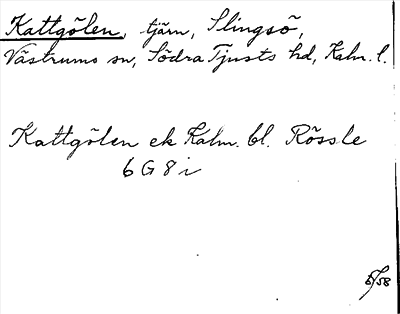 Kattgölen, tjärn, Slingsö,
Västrums sn, Södra Tjusts hd, Kalm. l.
Kattgölen ek Kalm. bl. Rössle
6 G 8 i
5/58